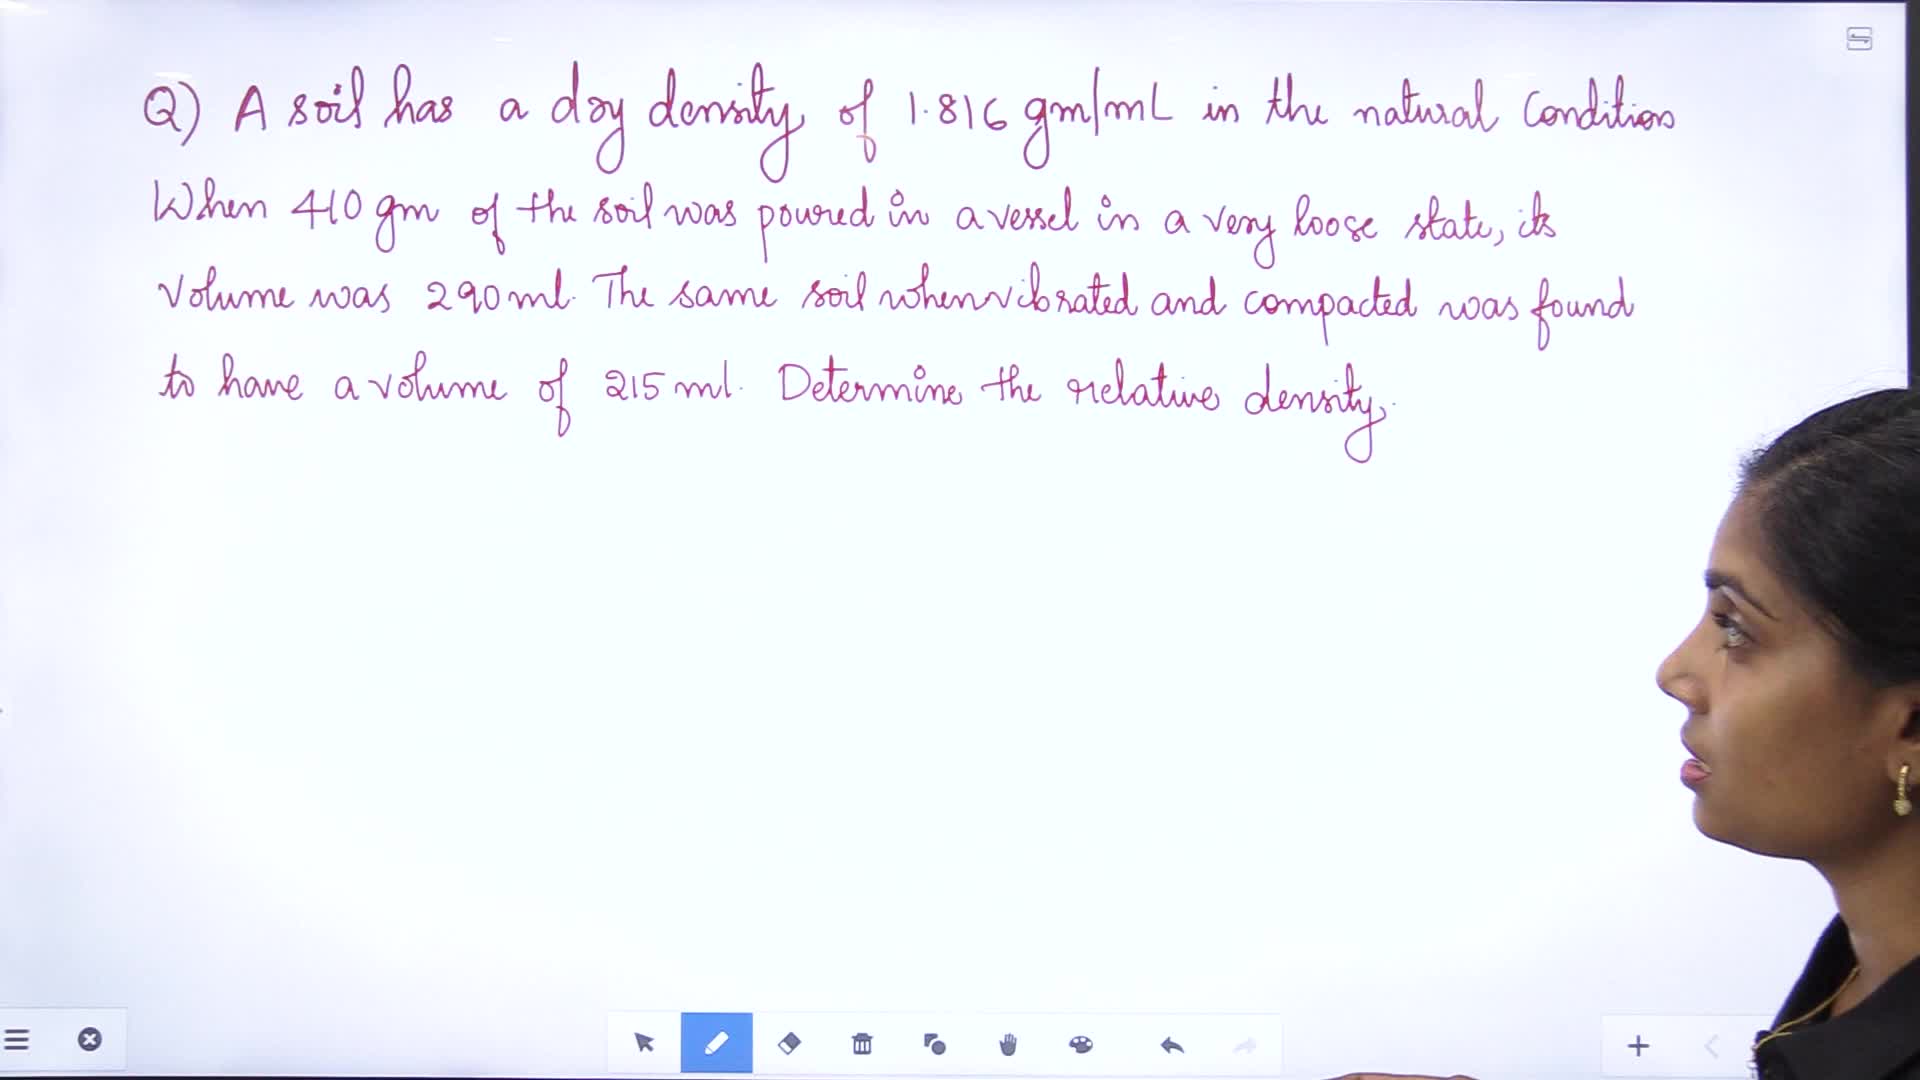 Q) A soil has a dry density of 1.816 gm/mL in the natural condition
When 410 gm of the soil was poured in a vessel in a very loose state, its
volume was 290 ml. The same soil when vibrated and compacted was found
to have a volume of 215 ml. Determine the relative density.